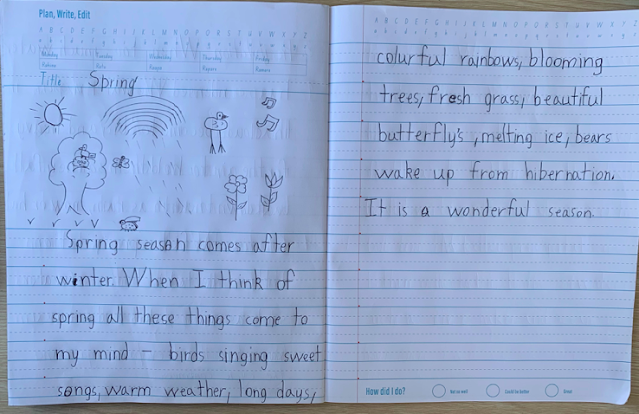 Plan, Write, Edit
A B C D E F G H I J K L M N O P Q R S T U V W X Y Z
Monday Tuesday Wednesday Thursday Friday
Title Spring
Spring season comes after
winter. When I think of
spring all these things come to
my mind – birds singing sweet
songs, warm weather, long days,
A B C D E F G H I J K L M N O P Q R S T U V W X Y Z
colurful rainbows, blooming
trees, fresh grass, beautiful
butterfly's, melting ice, bears
wake up from hibernation.
It is a wonderful season.
How did I do? Not so well Could be better Great